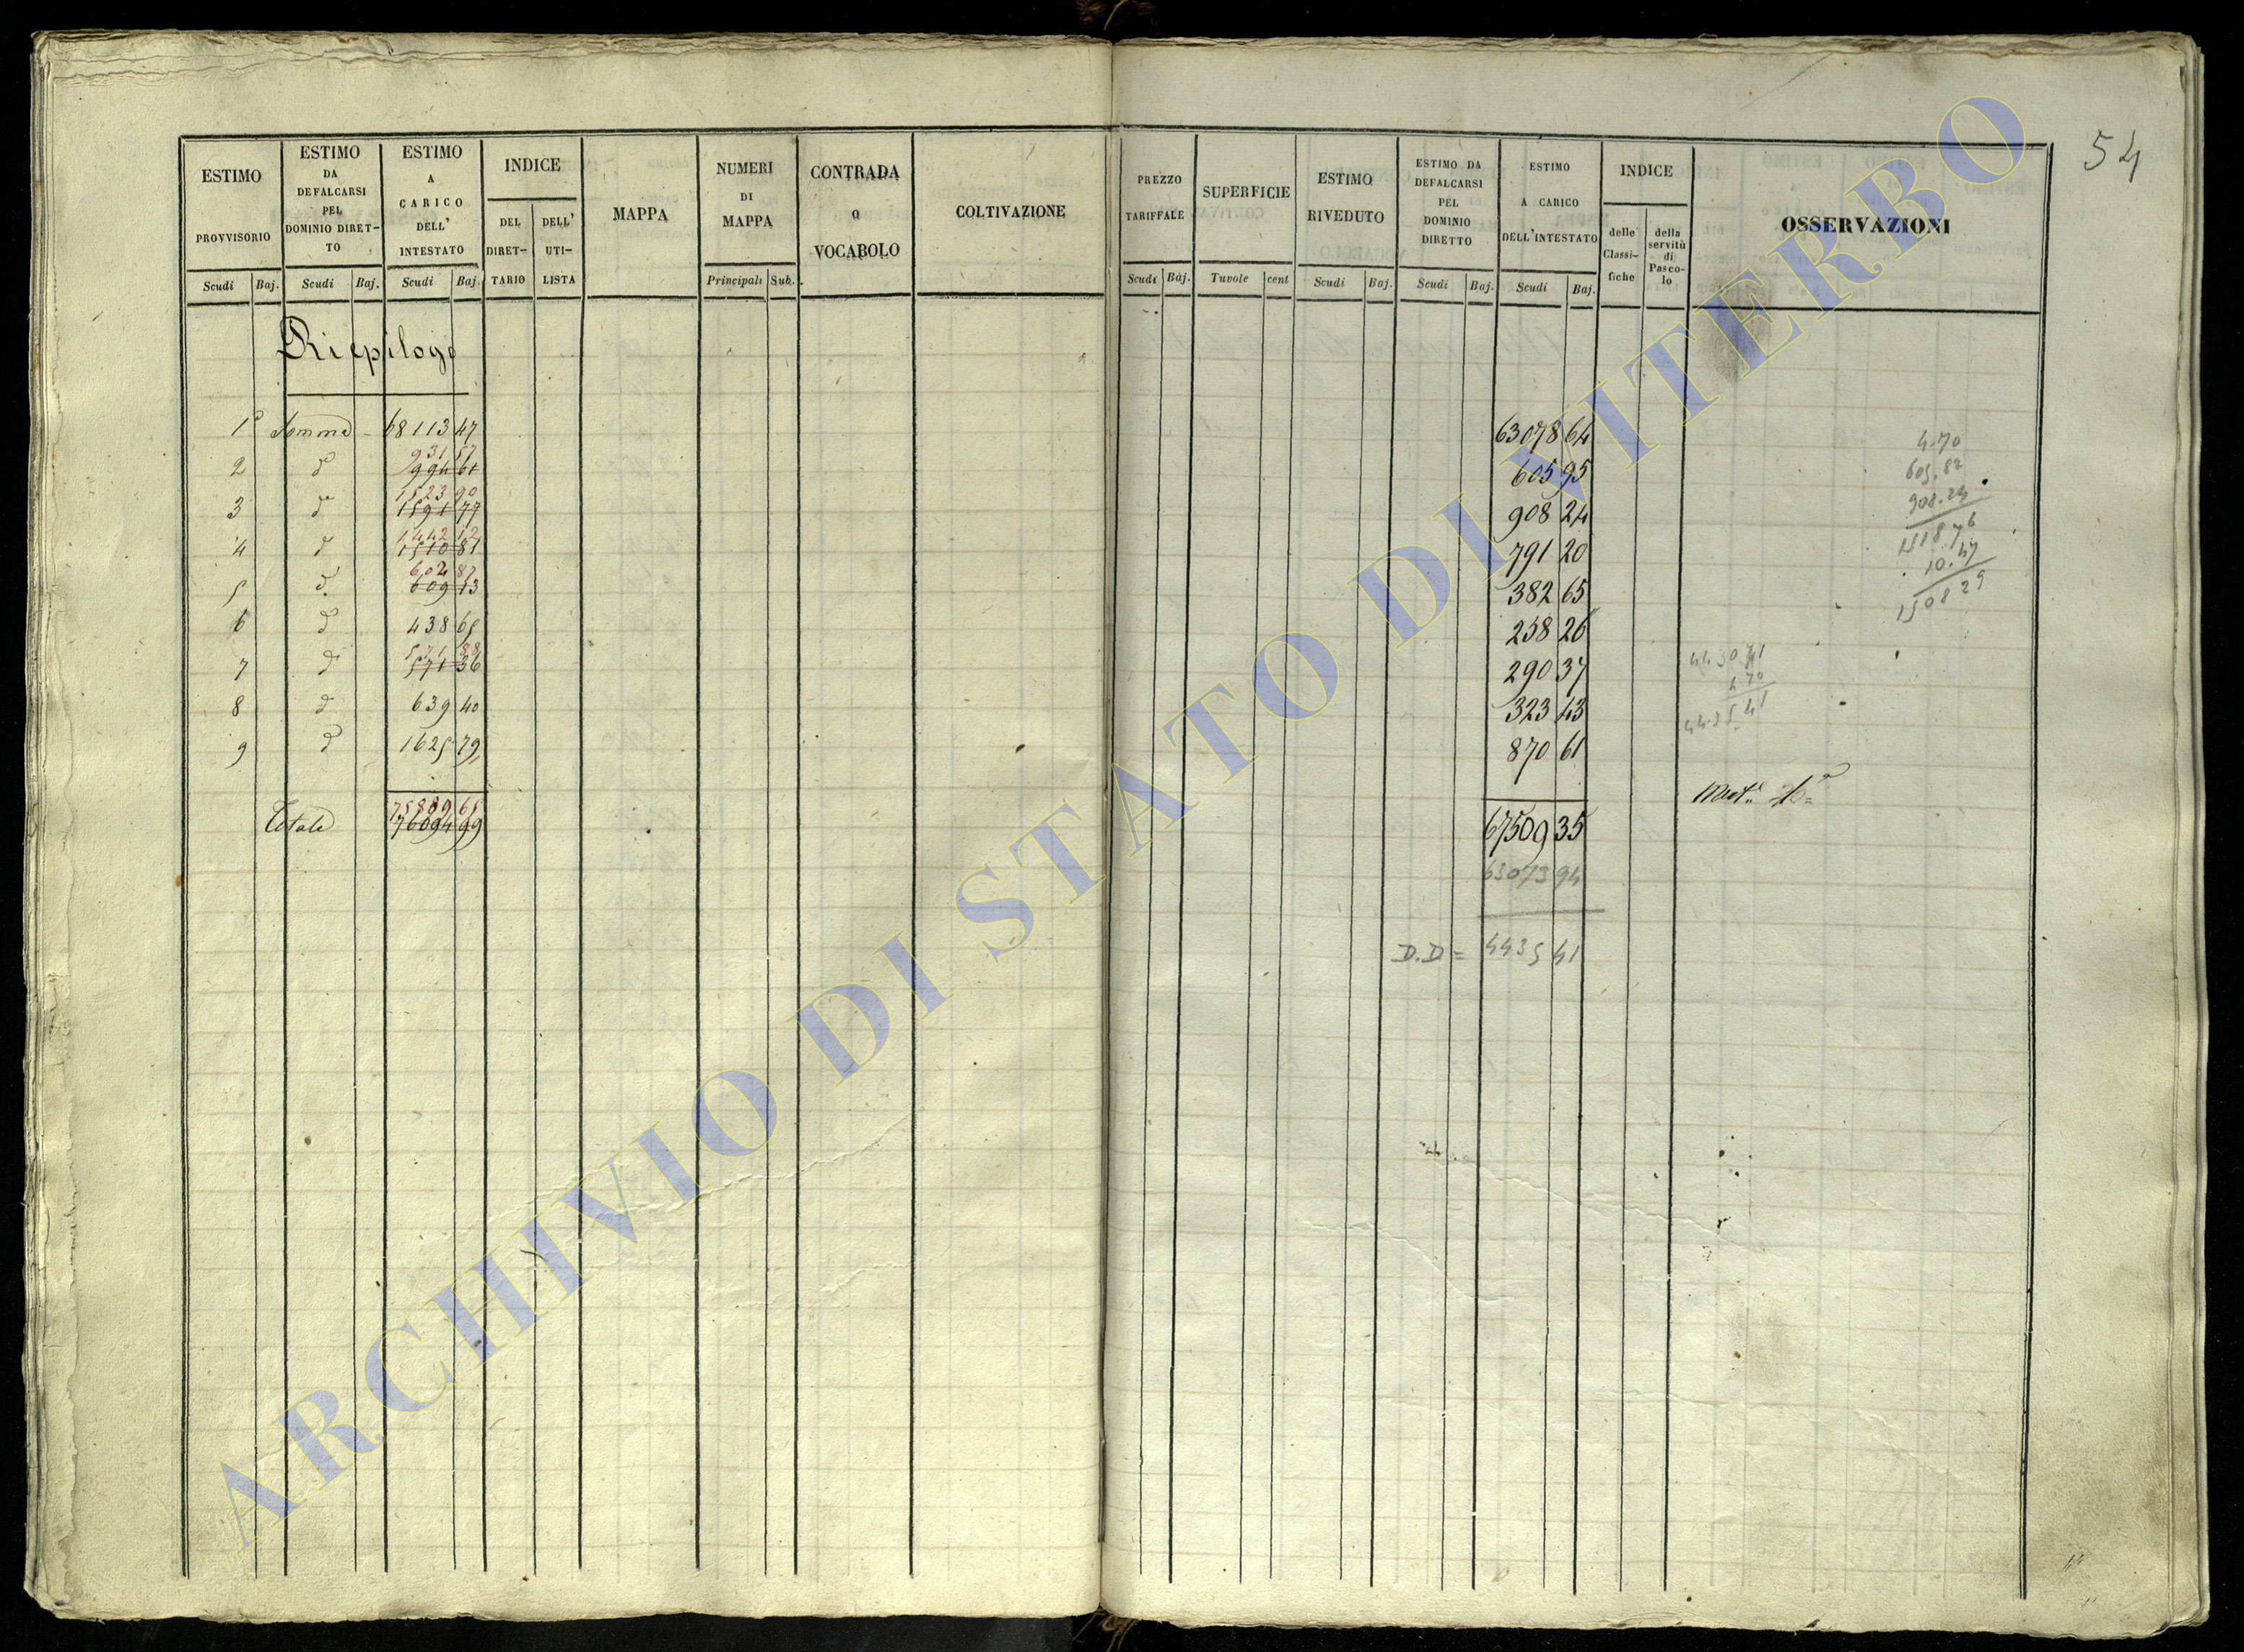 54
ESTIMO PROVVISORIO
Scudi Baj.
ESTIMO DA DEFALCARSI PEL DOMINIO DIRET-TO
Scudi Baj.
ESTIMO A CARICO DELL' INTESTATO
Scudi Baj.
INDICE
DEL DIRET-TARIO
DELL' UTI-LISTA
MAPPA
NUMERI DI MAPPA
Principali Sub.
CONTRADA O VOCABOLO
COLTIVAZIONE
PREZZO TARIFFALE
Scudi Baj.
SUPERFICIE
Tavole cent
ESTIMO RIVEDUTO
Scudi Baj.
ESTIMO DA DEFALCARSI PEL DOMINIO DIRETTO
Scudi Baj.
ESTIMO A CARICO DELL'INTESTATO
Scudi Baj.
INDICE
delle Classi-fiche
della servitù di Pasco-lo
OSSERVAZIONI
Riepilogo
1° Somma 68113 47 63078 64
931 57
2 d° 994 61 605 95
1523 90
3 d° 1591 77 908 24
1442 12
4 d° 1510 81 791 20
602 87
5 d° 609 13 382 65
6 d° 438 65 258 26
571 88
7 d° 571 36 290 37
8 d° 639 40 323 43
9 d° 1625 79 870 61
75889 65
Totale 76094 99 67509 35
63073 94
D.D = 4435 41
4.70
605.82
908.24
1518.76
10.47
1508 29
4430 71
4 70
4435 41
ARCHIVIO DI STATO DI VITERBO